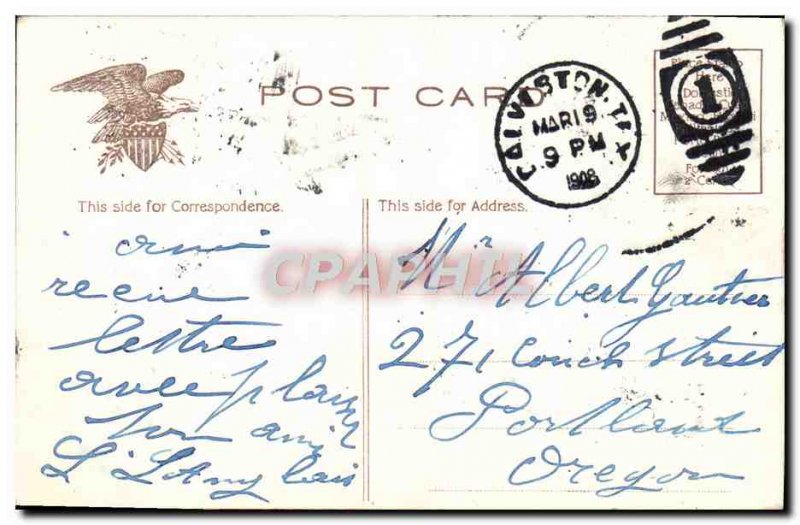 POST CARD
GALVESTON, TEX
MAR 19
9 PM
1908
1
Here
This side for Correspondence.
This side for Address.
CPAPHIL
ami
recue
lettre
avec plaisir
ton ami
L. L'Anglais
Mr Albert Gautier
271 Couch Street
Portland
Oregon